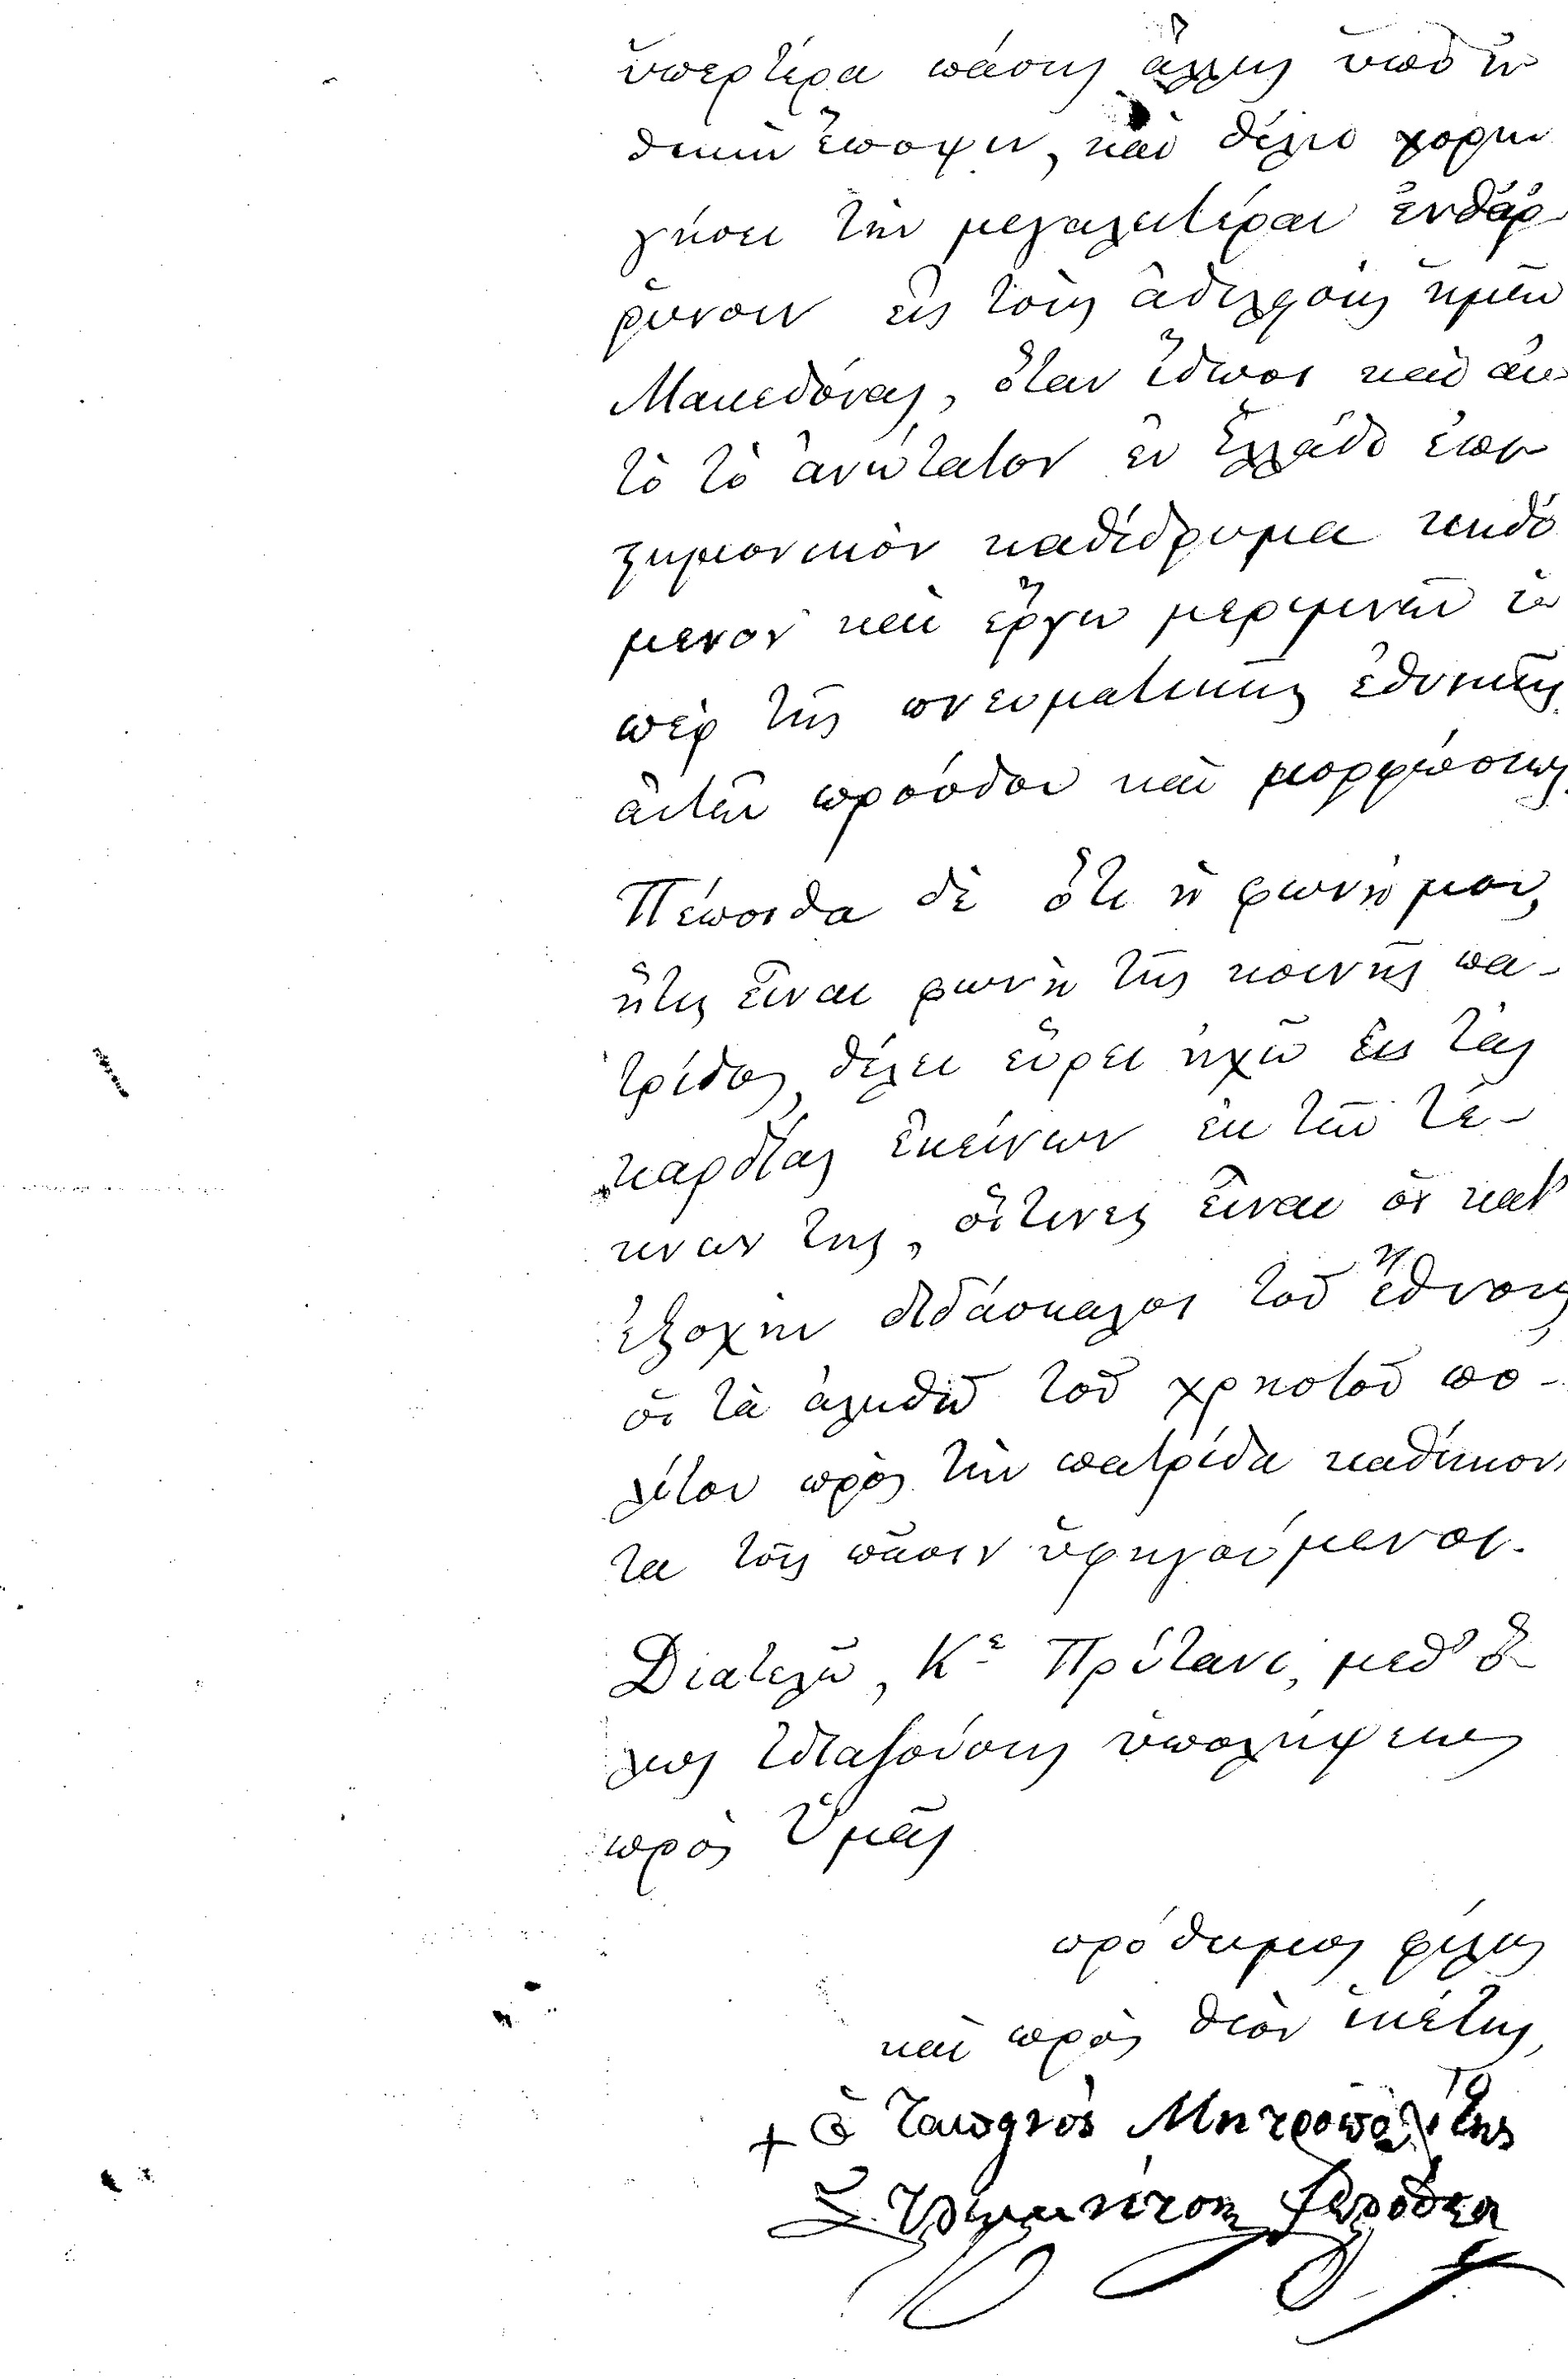 ὑπερτέρα πάσης ἄλλης ὑπὸ ἠ
θικὴν ἔποψιν, καὶ θέλει χορη
γήσει τὴν μεγαλειτέραν ἐνθάρ
ρυνσιν εἰς τοὺς ἀδελφοὺς ἡμῶν
Μακεδόνας, ὅταν ἴδωσι καὶ αὐ
τὸ τὸ ἀνώτατον ἐν Ἑλλάδι ἐπι
στημονικὸν καθίδρυμα κηδό
μενον καὶ ἔργῳ μεριμνῶν ὑ
πὲρ τῆς πνευματικῆς ἐθνικῆς
αὐτῶν προόδου καὶ μορφώσεως.
Πέποιθα δὲ ὅτι ἡ φωνή μου,
ἥτις εἶναι φωνὴ τῆς κοινῆς πα-
τρίδος, θέλει εὕρει ἠχὼ εἰς τὰς
καρδίας ἐκείνων ἐκ τῶν τέ-
κνων της, οἵτινες εἶναι οἱ κατ'
ἐξοχὴν διδάσκαλοι τοῦ ἔθνους,
οἱ τὰ ἀληθῆ τοῦ χρηστοῦ πο-
λίτου πρὸς τὴν πατρίδα καθήκον
τα τοῖς πᾶσιν ὑφηγούμενοι.
Διατελῶ, Κε Πρύτανι, μεθ' ὅ-
λης ἰδιαζούσης ὑπολήψεως
πρὸς Ὑμᾶς
πρόθυμος φίλος
καὶ πρὸς Θεὸν ἱκέτης,
+ ὁ ταπεινὸς Μητροπολίτης